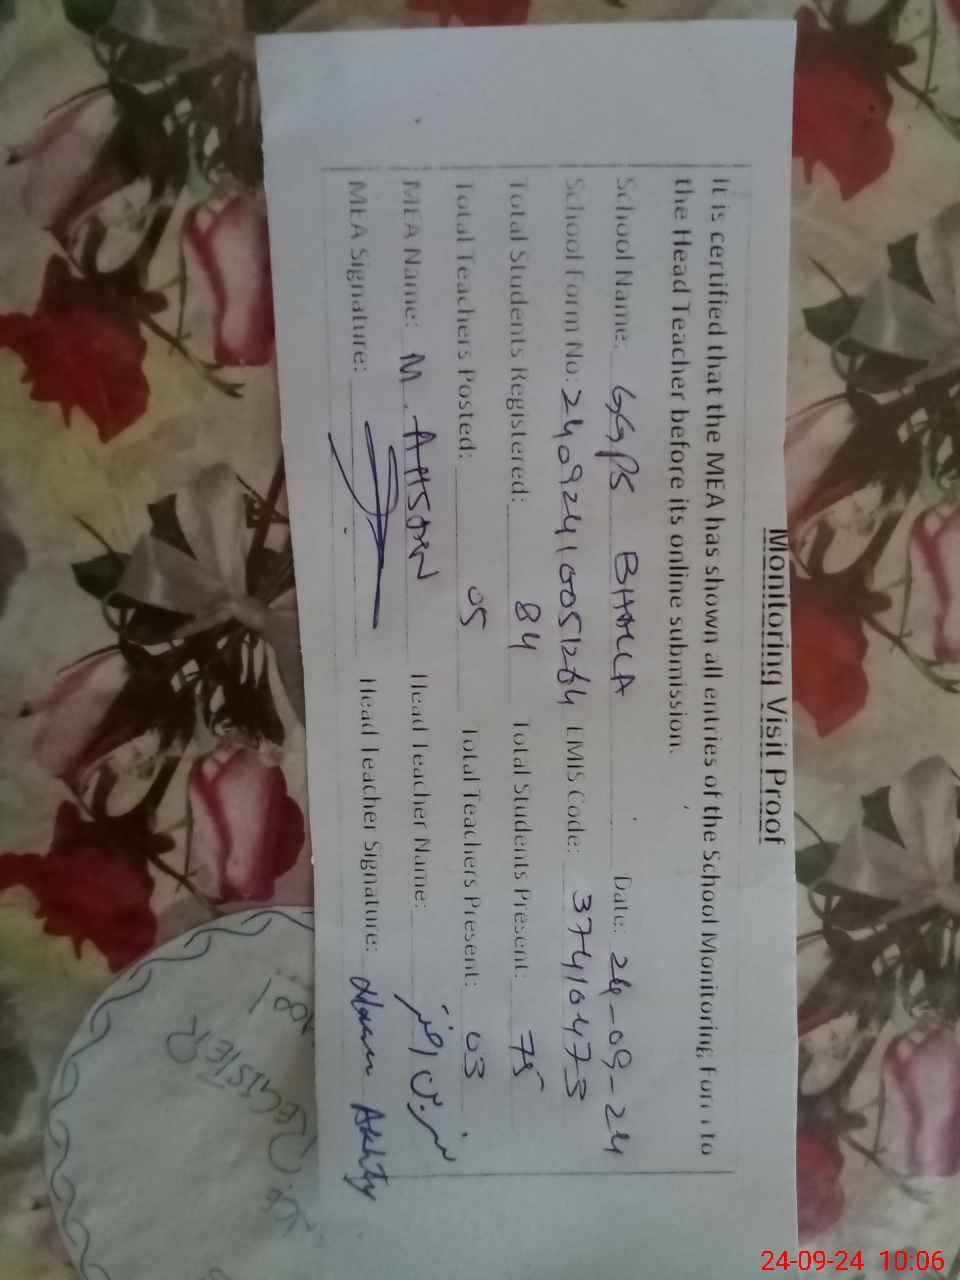 Monitoring Visit Proof
It is certified that the MEA has shown all entries of the School Monitoring Form to
the Head Teacher before its online submission.
School Name: GGPS BHALLA Date: 24-09-24
School Form No: EMIS Code: 37410473
Total Students Registered: 84 Total Students Present: 75
Total Teachers Posted: 05 Total Teachers Present: 03
MEA Name: M. AHSAN Head Teacher Name:
MEA Signature: Head Teacher Signature: Akhtr
REGISTER
24-09-24 10:06